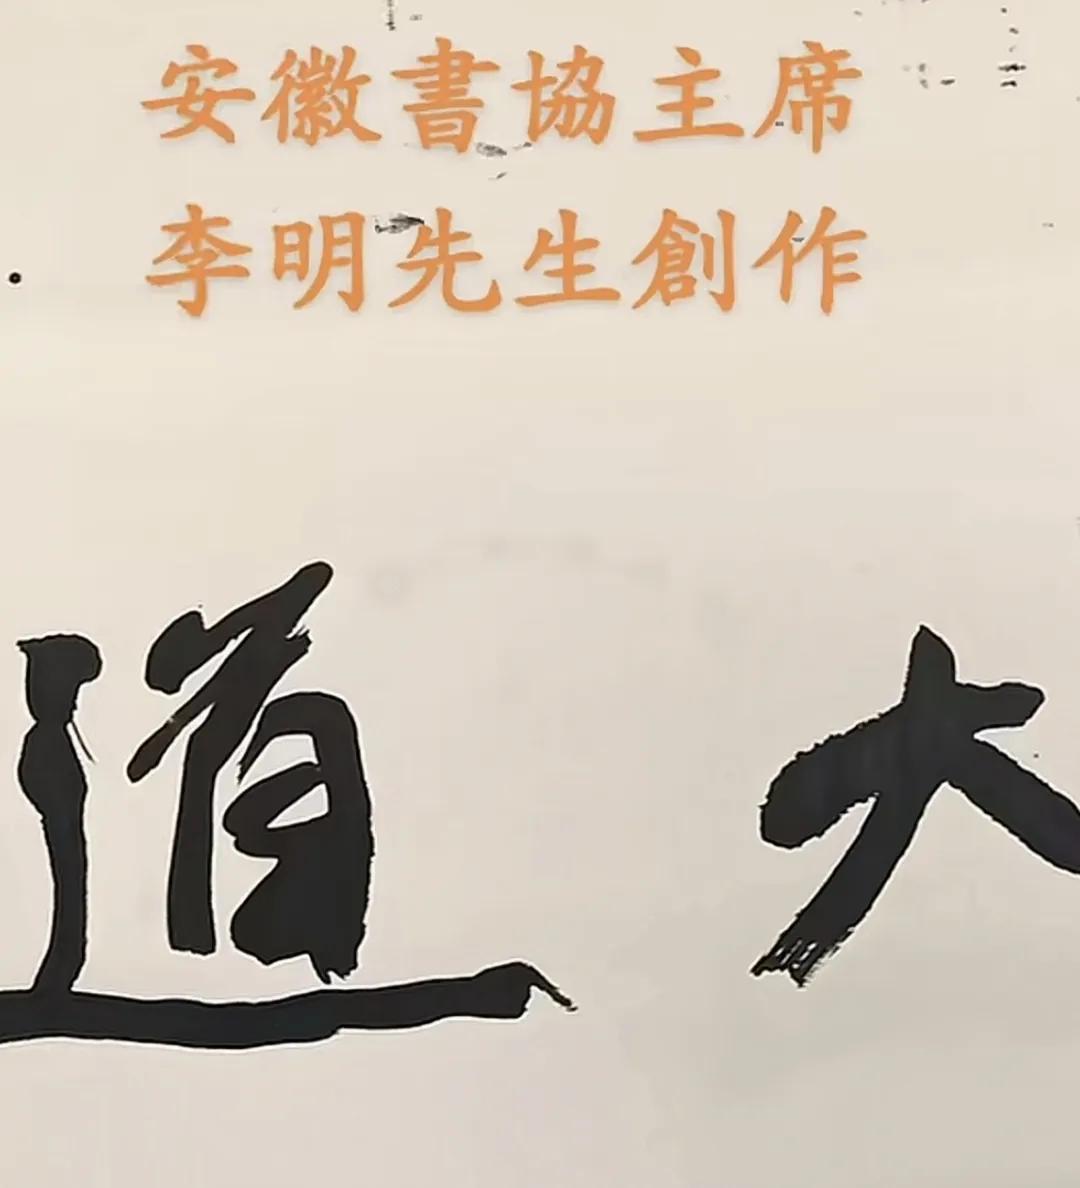 安徽書協主席
李明先生創作
大道